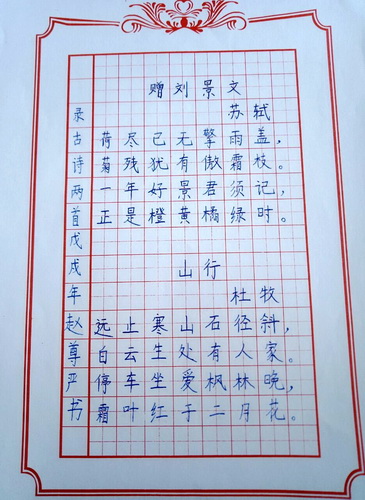 赠刘景文
苏轼
荷尽已无擎雨盖，
菊残犹有傲霜枝。
一年好景君须记，
正是橙黄橘绿时。
山行
杜牧
远上寒山石径斜，
白云生处有人家。
停车坐爱枫林晚，
霜叶红于二月花。
录古诗两首戊戌年赵尊严书